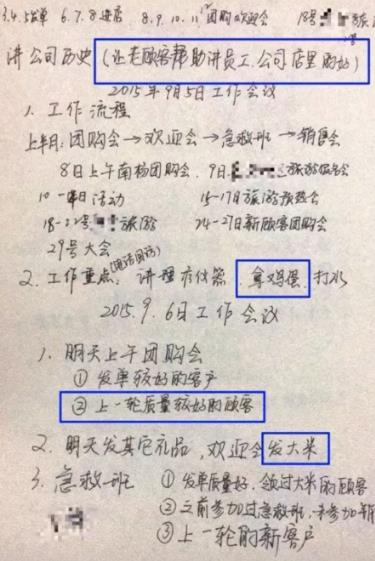 3.4.5发单 6.7.8进店 8.9.10.11团购欢迎会 18号 旅游
讲公司历史(让老顾客帮助讲员工.公司店里的好)
2015年9月5日工作会议
1.工作流程
上半月:团购会→欢迎会→急救班→销售会
8日上午南杨团购会、9日 旅游报告会
活动 15-17日旅游预热会
18-22号 旅游 24-27日新顾客团购会
29号大会
2.工作重点(电话回访) 讲理疗仪器.拿鸡蛋.打水
2015.9.6日工作会议
1.明天上午团购会
①发单较好的客户
②上一轮质量较好的顾客
2.明天发其它礼品,欢迎会发大米
3.急救班 ①发单质量好.领过大米的顾客
②之前参加过急救班.未参加销
③上一轮的新客户